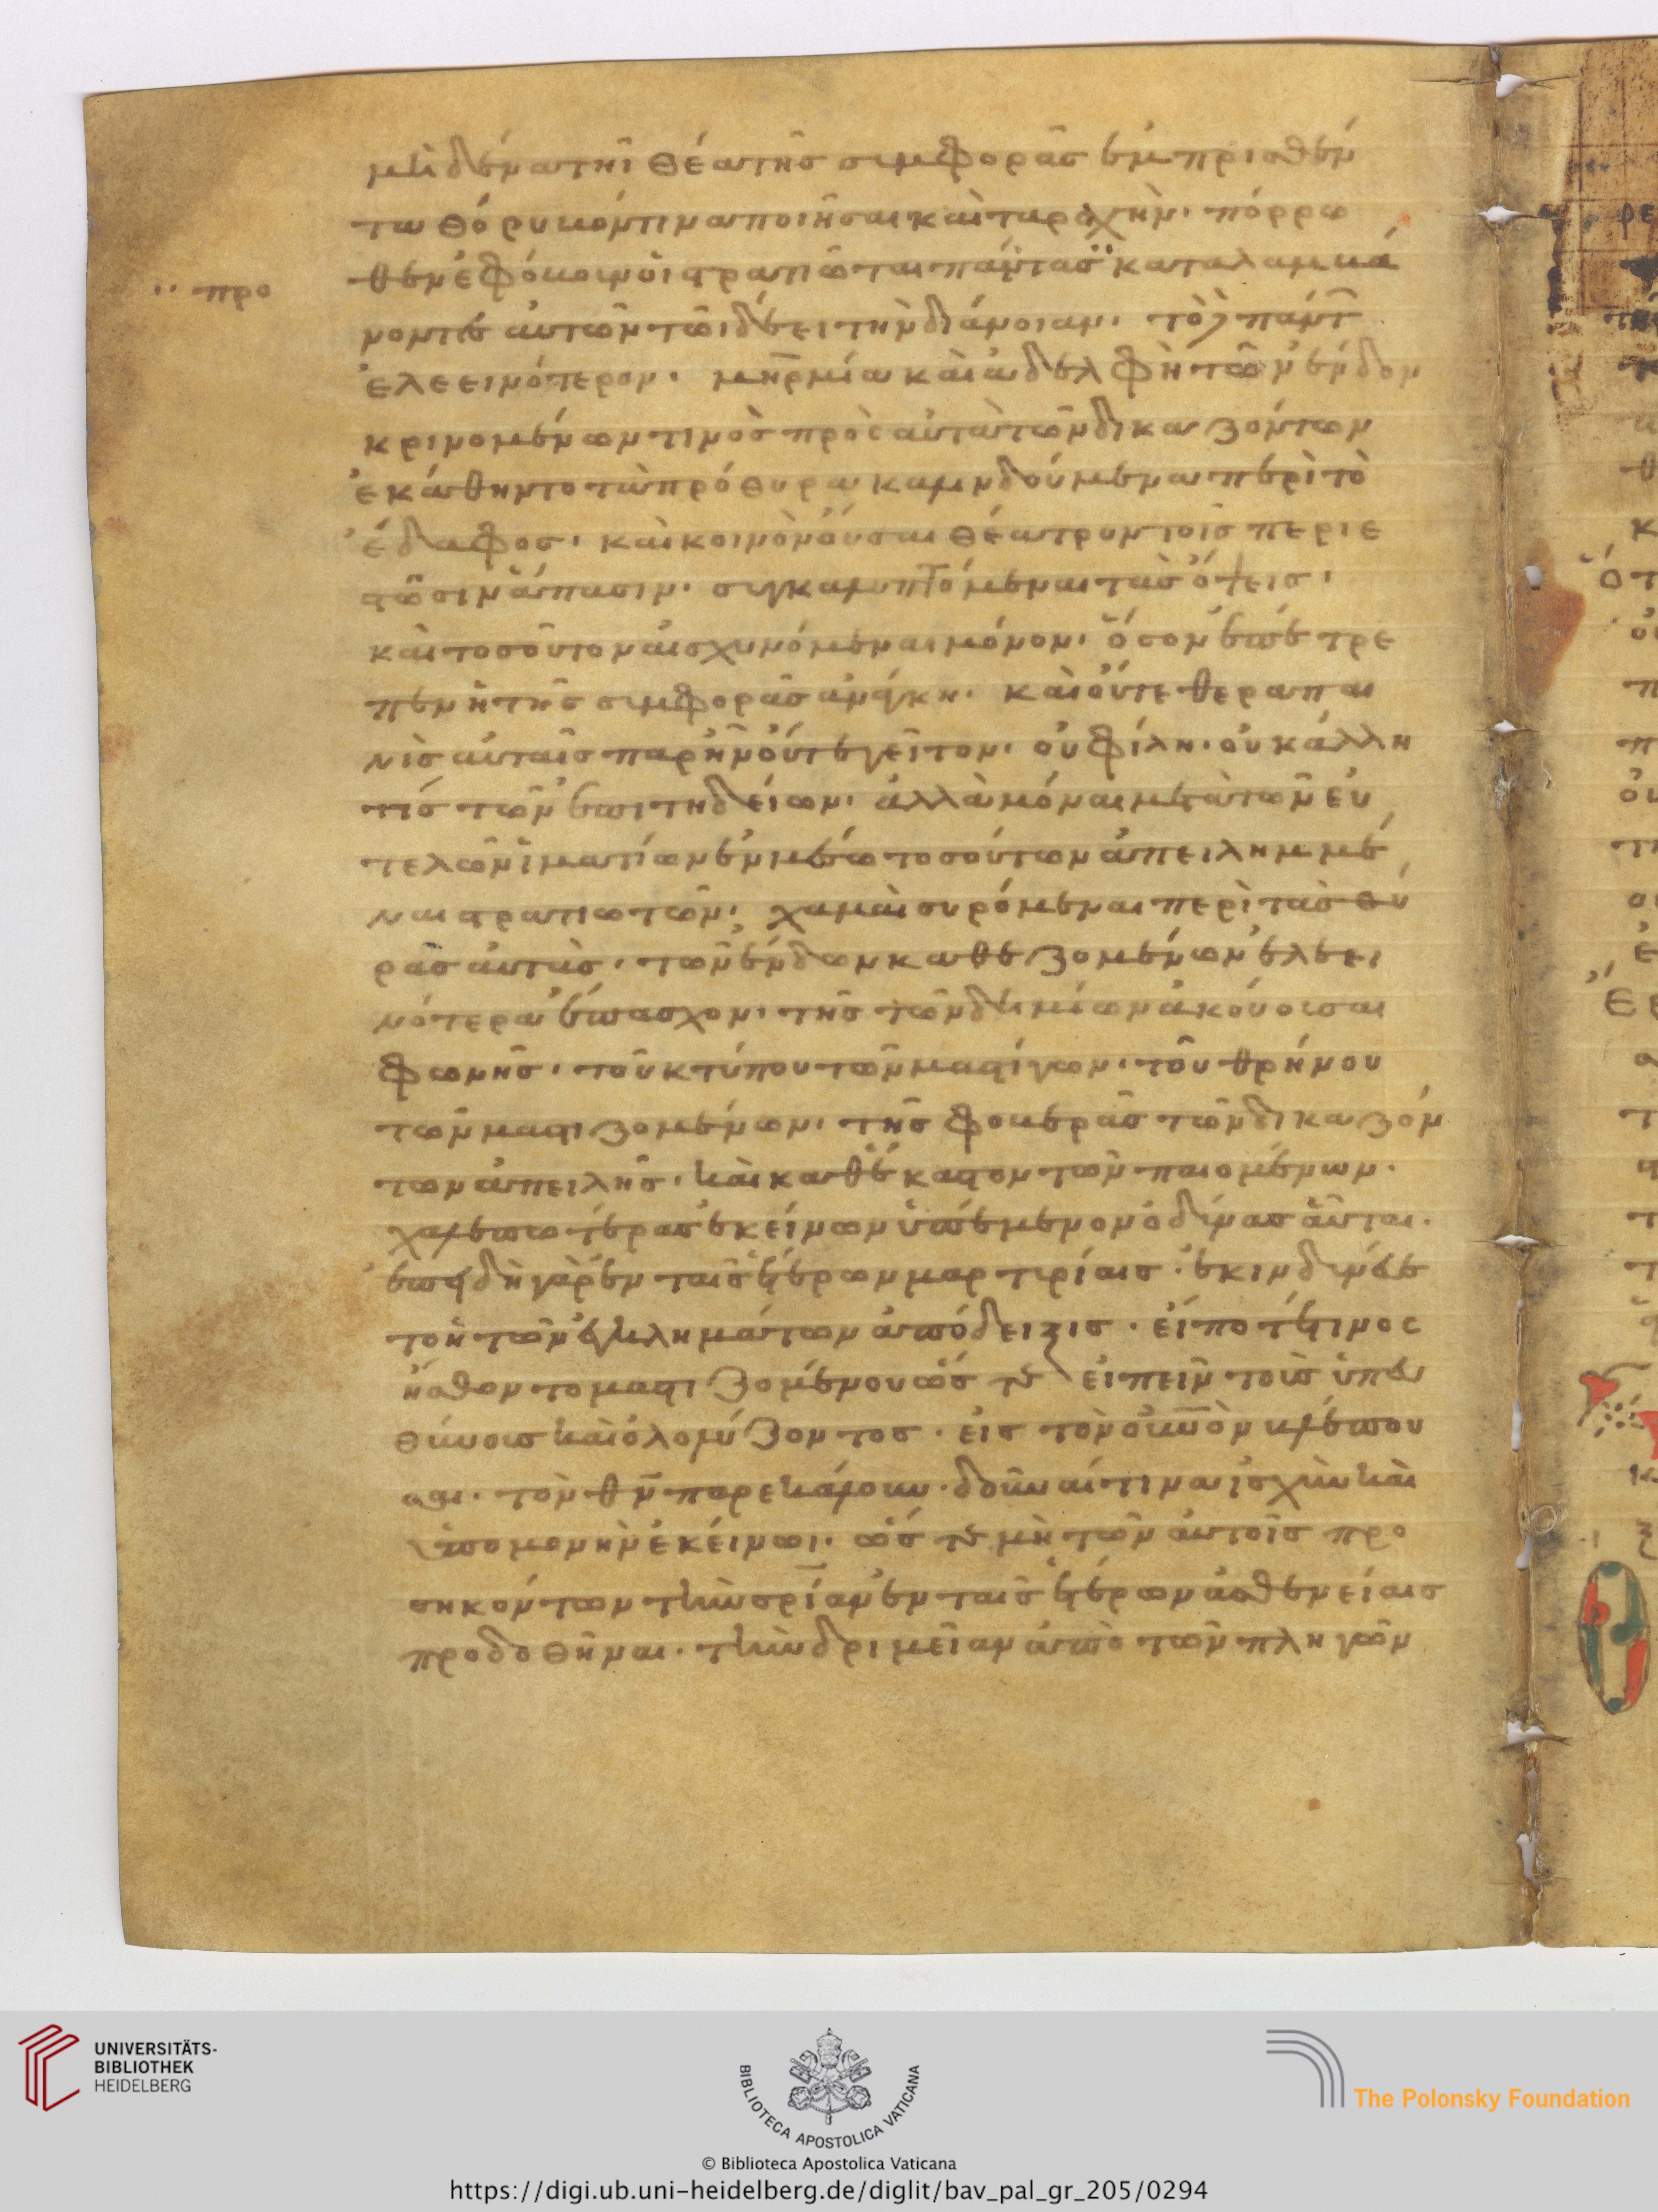 μὴ δῆμα τῆι θέα τῆς συμφορᾶς ἐμπρισθὲν
τα θόρυβόν τινα ποιῆσαι καὶ ταραχὴν· πόρρω
θεν ἐφόβουν οἱ στρατιῶται πάντας ̈ καταλαμβά
·· προ
νοντες αὐτῶν τῶι δέει τὴν διάνοιαν· τὸ δὲ πάντ
ἐλεεινότερον· μηρ μία καὶ ἀδελφὴ τῶν ἔνδον
κρινομένων τινὸς πρὸς αὐτὰ τῶν δικαζόντων
ἐκάθηντο τὰ πρόθυρα καλινδούμενα περὶ τὸ
ἔδαφος· καὶ κοινὸν οὖσαι θέατρον τοῖς περιε
στῶσιν ἅπασιν· συγκαλυπτόμεναι τὰς ὄψεις·
καὶ τοσοῦτον αἰσχυνόμεναι μόνον· ὅσον ἐπέτρε
πεν ἡ τῆς συμφορᾶς ἀνάγκη· καὶ οὔτε θεραπαι
νὶς αὐταῖς παρῆν οὔτε γεῖτον· οὐ φίλη· οὐκ ἄλλη
τίς τῶν ἐπιτηδείων· ἀλλὰ μόναι μετὰ τῶν εὐ
τελῶν ἱματίων ἐν μέσω τοσούτων ἀπειλημμέ
ναι στρατιωτῶν· χαμαὶ συρόμεναι περὶ τὰς θύ
ρας αὐτὰς· τῶν ἔνδων καθεζομένων ἐλεει
νότερα ἔπασχον· τῆς τῶν δημίων ἀκούουσαι
φωνῆς· τοῦ κτύπου τῶν μαστίγων· τοῦ θρήνου
τῶν μαστιζομένων· τῆς φοβερᾶς τῶν δικαζόν
των ἀπειλῆς· καὶ καθ' ἕκαστον τῶν παιομένων·
χαλεπωτέρας ἐκείνων ὑπέμενον ὀδύνας αὗται·
ἐπειδὴ γὰρ ἐν ταῖς ἑτέρων μαρτυρίαις· ἐκινδύνευε
το ἡ τῶν ἐγκλημάτων ἀπόδειξις· εἴποτέ τινος
ἤσθοντο μαστιζομένου ὥστε εἰπεῖν τοὺς ὑπευ
θύνους καὶ ὀλολύζοντος· εἰς τὸν οὐνὸν βλέπου
σαι· τὸν θν παρεκάλουν· δοῦναί τινα ἰσχὺν καὶ
ὑπομονὴν ἐκείνωι· ὥστε μὴ τῶν αὐτοῖς προ
σηκόντων τὴν σρίαν ἐν ταῖς ἑτέρων ἀσθενείαις
προδοθῆναι· τὴν δριμεῖαν ἀπὸ τῶν πληγῶν
UNIVERSITÄTS-
BIBLIOTHEK
HEIDELBERG
BIBLIOTECA APOSTOLICA VATICANA
The Polonsky Foundation
© Biblioteca Apostolica Vaticana
https://digi.ub.uni-heidelberg.de/diglit/bav_pal_gr_205/0294